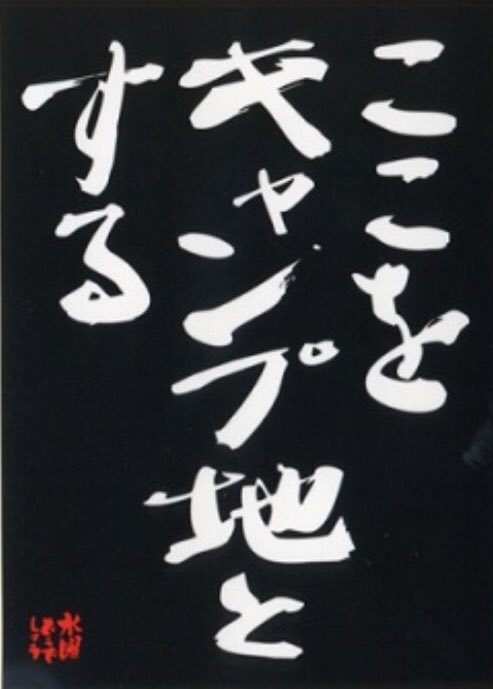 ここを
キャンプ地と
する
水曜
どうで
しょう